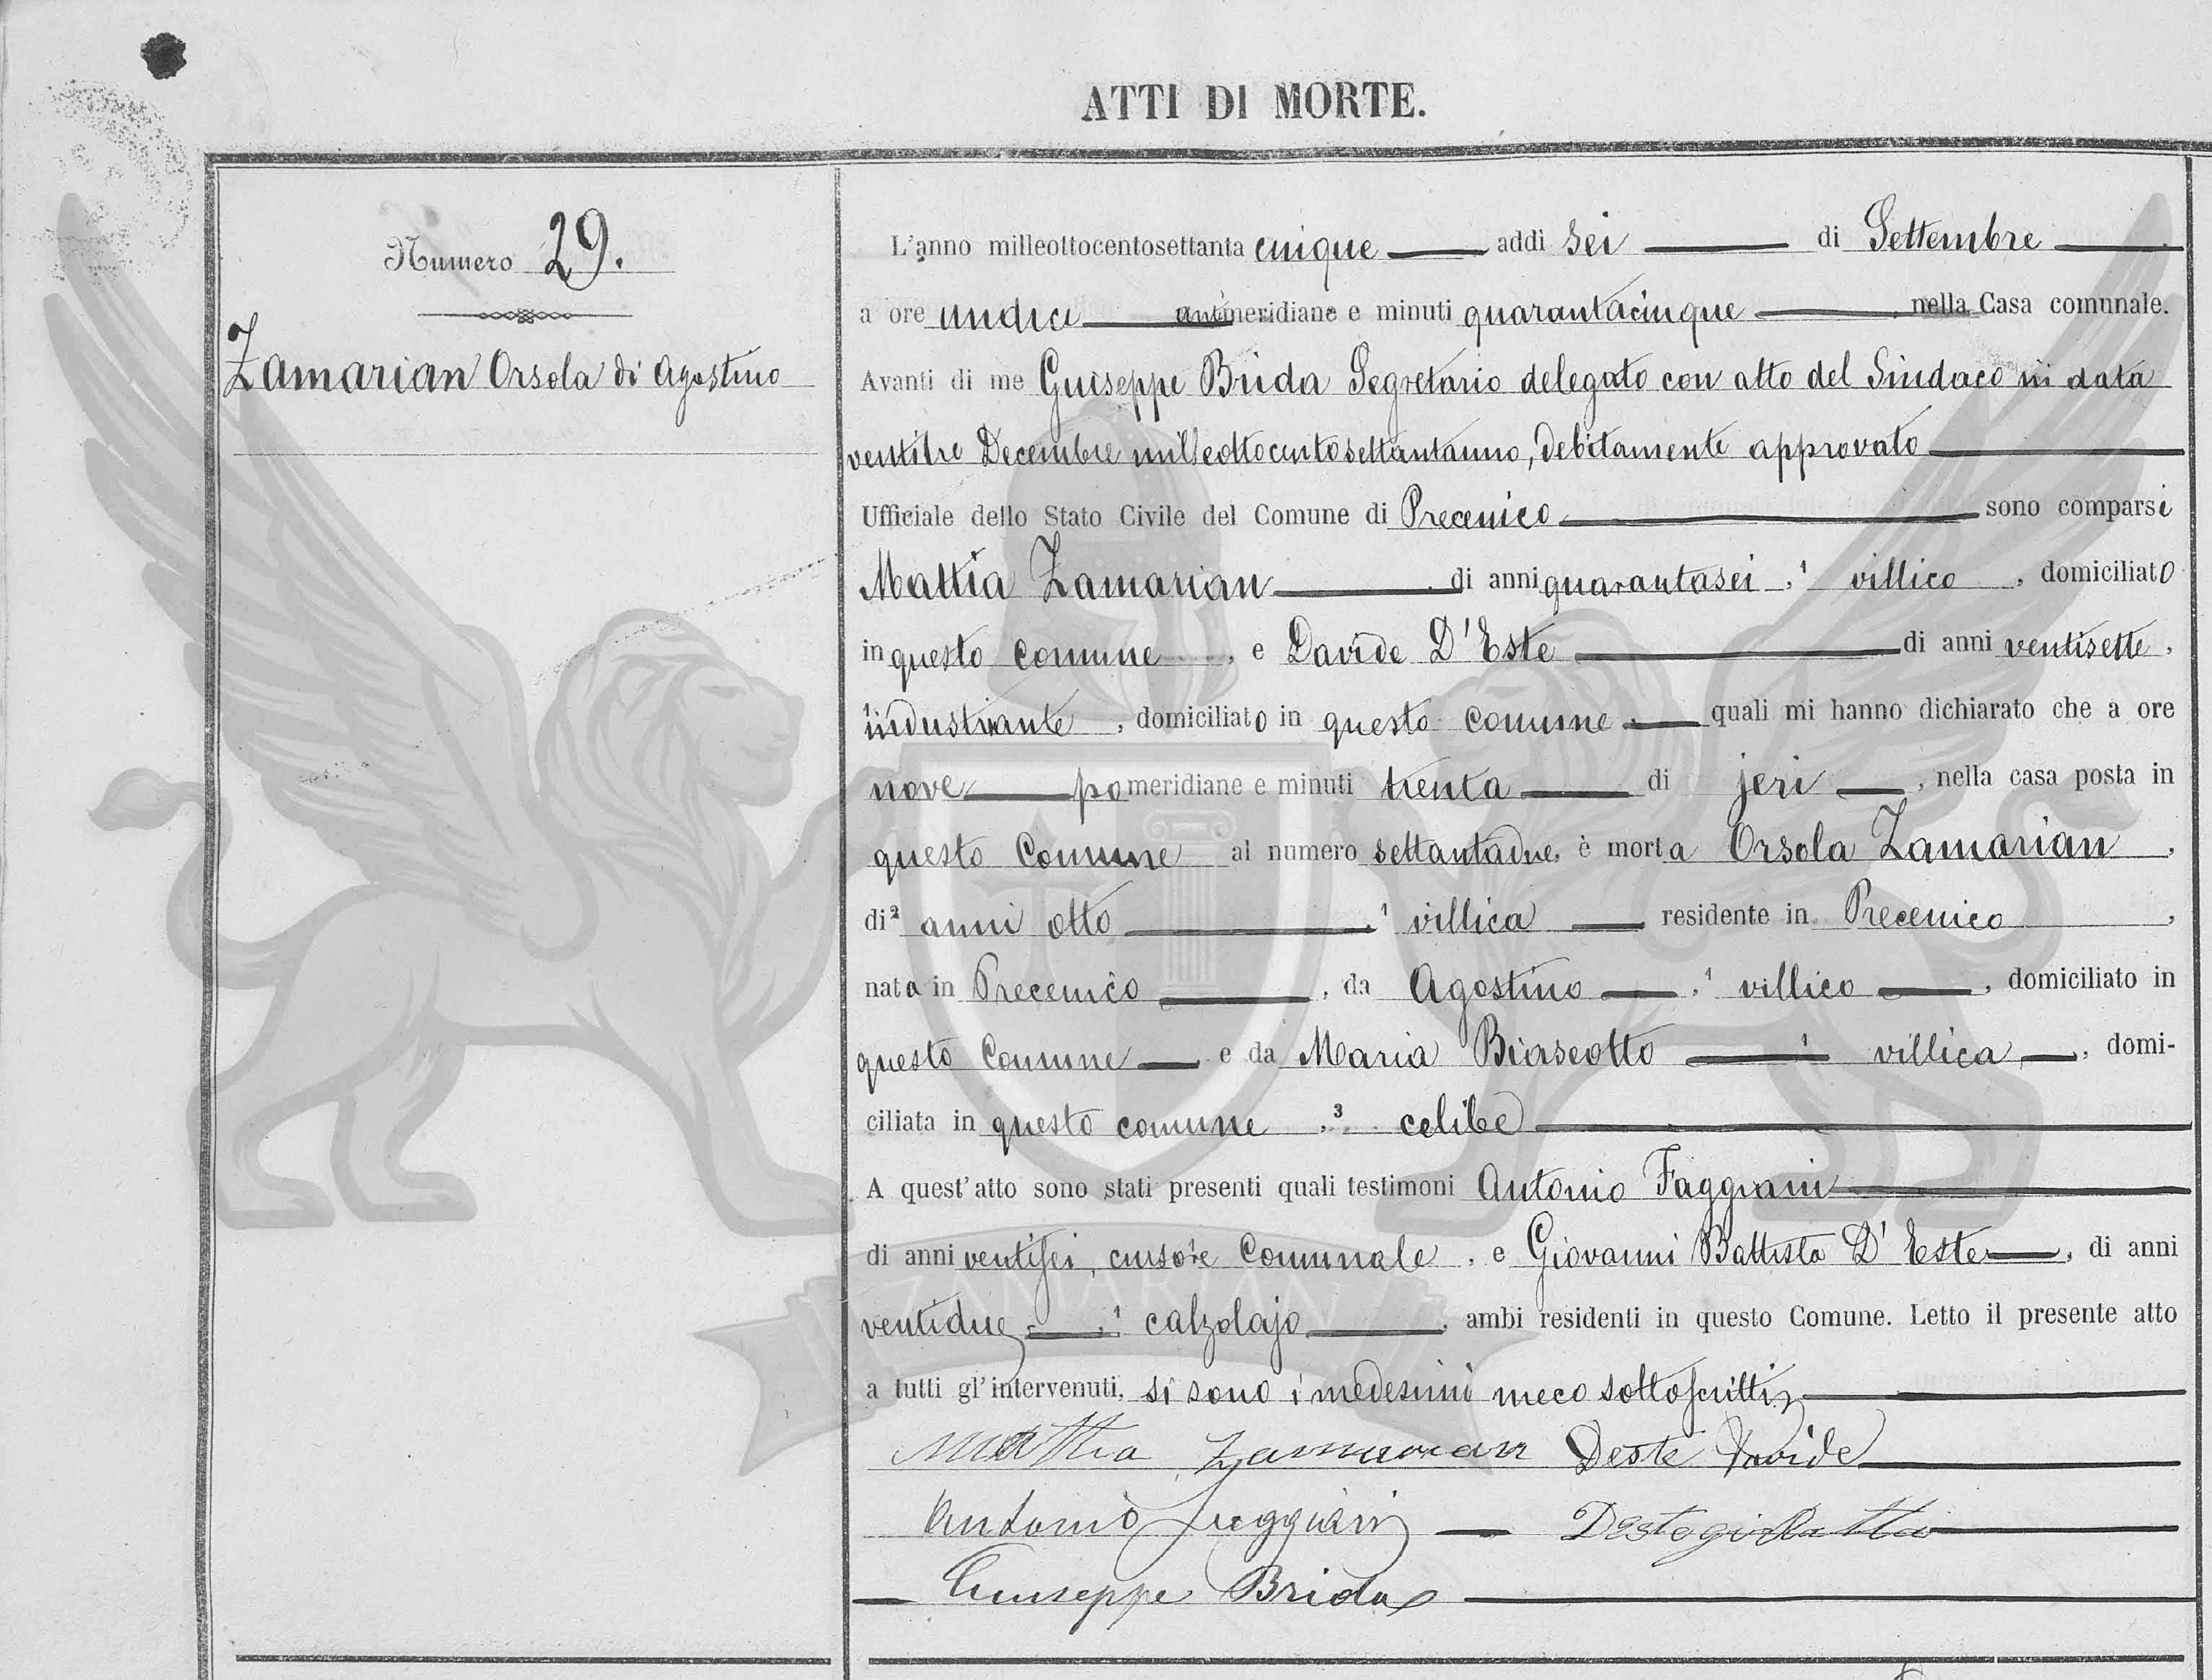 ATTI DI MORTE.
Numero 29.
Zamarian Orsola di Agostino
L'anno milleottocentosettanta cinque addì sei di Settembre
a ore undici antimeridiane e minuti quarantacinque nella Casa comunale.
Avanti di me Giuseppe Brida Segretario delegato con atto del Sindaco in data
ventitre Decembre milleottocentosettantauno, debitamente approvato
Ufficiale dello Stato Civile del Comune di Precenico sono comparsi
Mattia Zamarian di anni quarantasei, 1 villico, domiciliato
in questo comune, e Davide D'Este di anni ventisette,
1 industriante, domiciliato in questo comune quali mi hanno dichiarato che a ore
nove pomeridiane e minuti trenta di jeri, nella casa posta in
questo Comune al numero settantadue, è morta Orsola Zamarian,
di 2 anni otto, 1 villica residente in Precenico,
nata in Precenico, da Agostino, 1 villico, domiciliato in
questo Comune e da Maria Biasotto 1 villica, domi-
ciliata in questo comune, 3 celibe
A quest'atto sono stati presenti quali testimoni Antonio Faggiani
di anni ventisei, cursore Comunale, e Giovanni Battista D'Este, di anni
ventidue, 1 calzolajo, ambi residenti in questo Comune. Letto il presente atto
a tutti gl'intervenuti, si sono i medesimi meco sottoscritti
Mattia Zamarian Deste Davide
Antonio Faggiani Deste gio Batta
Giuseppe Brida
ZAMARIAN